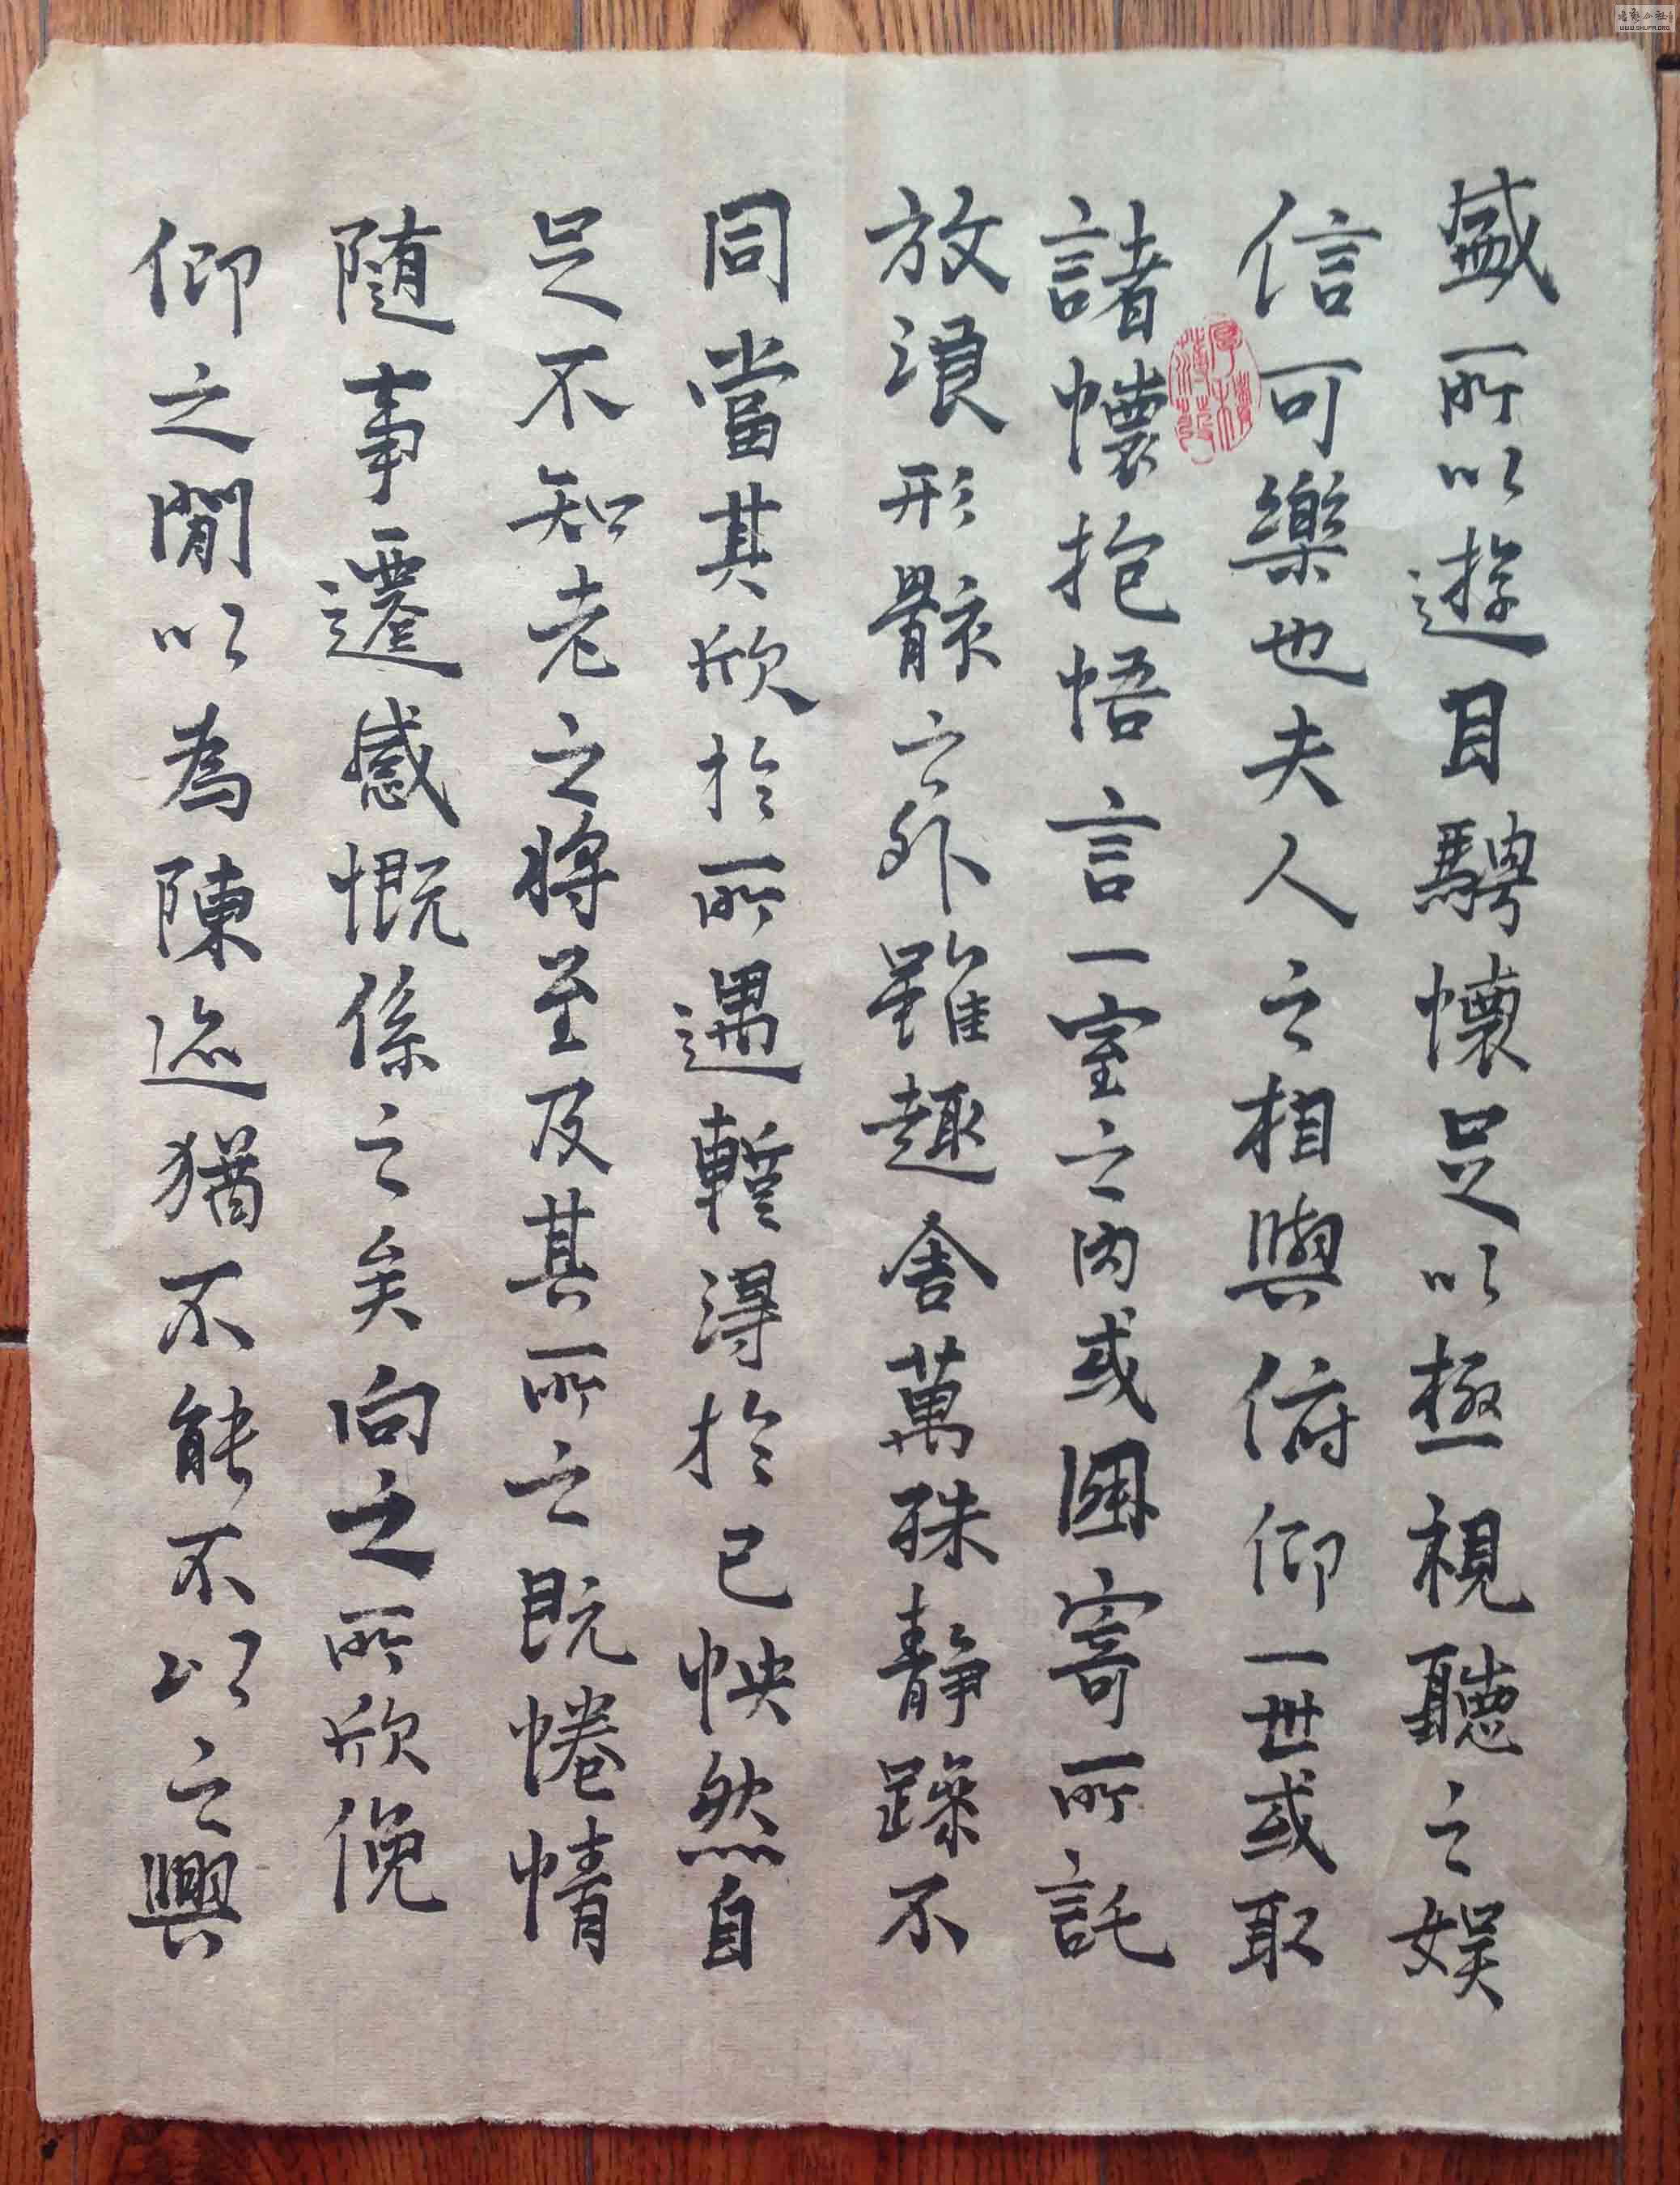 盛所以遊目騁懷足以極視聽之娛
信可樂也夫人之相與俯仰一世或取
諸懷抱悟言一室之內或因寄所託
放浪形骸之外雖趣舍萬殊靜躁不
同當其欣於所遇暫得於己怏然自
足不知老之將至及其所之既惓情
隨事遷感慨係之矣向之所欣俛
仰之閒以為陳迹猶不能不以之興
厚積薄發
WWW.SHUFA.ORG